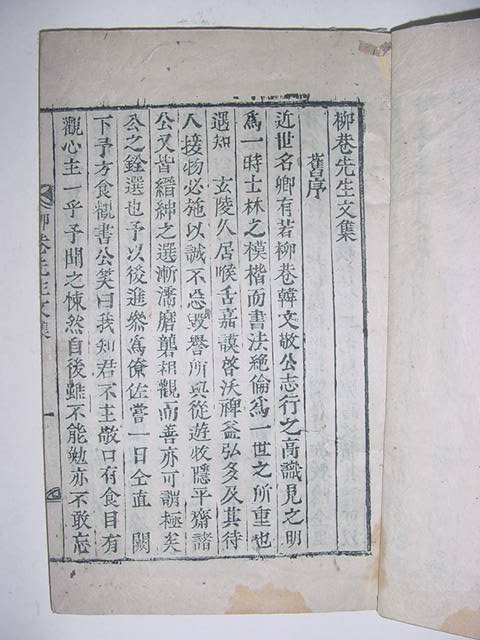 柳巷先生文集
舊序
近世名卿有若柳巷韓文敬公志行之高識見之明
爲一時士林之模楷而書法絶倫爲一世之所重也
遇知 玄陵久居喉舌嘉謨啓沃裨益弘多及其待
人接物必施以誠不忘毀譽所與從遊牧隱平齋諸
公又皆縉紳之選漸濡磨礱相觀而善亦可謂極矣
公之銓選也予以後進叅爲僚佐嘗一日仝直 闕
下予方食觀書公笑曰我知君不主敬口有食目有
觀心主一乎予聞之悚然自後雖不能勉亦不敢忘
柳巷先生文集 一